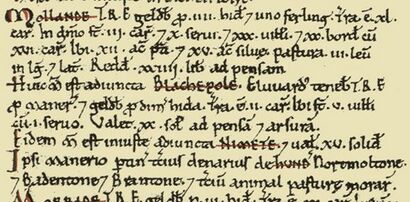 Mollande T.R.E. geldb̄ ꝓ .iiii. hid̄ ⁊ uno ferling. Tr̃a .ē. xl.
car̃. In dñio st̃ .iii. car̃. ⁊ x. serui. ⁊ xxx. uilli ⁊ xx. bord̄ cū
xvi. car̃. Ibi .xii. ac̃ p̃ti. ⁊ xv. ac̃ siluæ. Pastura .iii. leũ
in lḡ ⁊ lat̃. Redd̄ .xxiiii. lib̄ ad pensam.
Huic m̃ est adiuncta Blachepole. Eluuard teneb̄ T.R.E.
ꝓ maner̃. ⁊ geldb̄ ꝓ dim̄ hida. Tr̃a .ē. ii. car̃. Ibi st̃ .v. uilli
cū .i. seruo. Valet .xx. sol̄ ad pensã ⁊ arsurã.
Eidem m̃ est iniuste adiuncta Nimete. ⁊ ual̄ .xv. solid̄.
Ipsi manerio ptin̄ t̃cius denarius de hund Nortmoltone
⁊ Badentone ⁊ Brantone ⁊ t̃ciũ animal pasturæ morar̃.
T.R.E. geldb̄ ꝓ